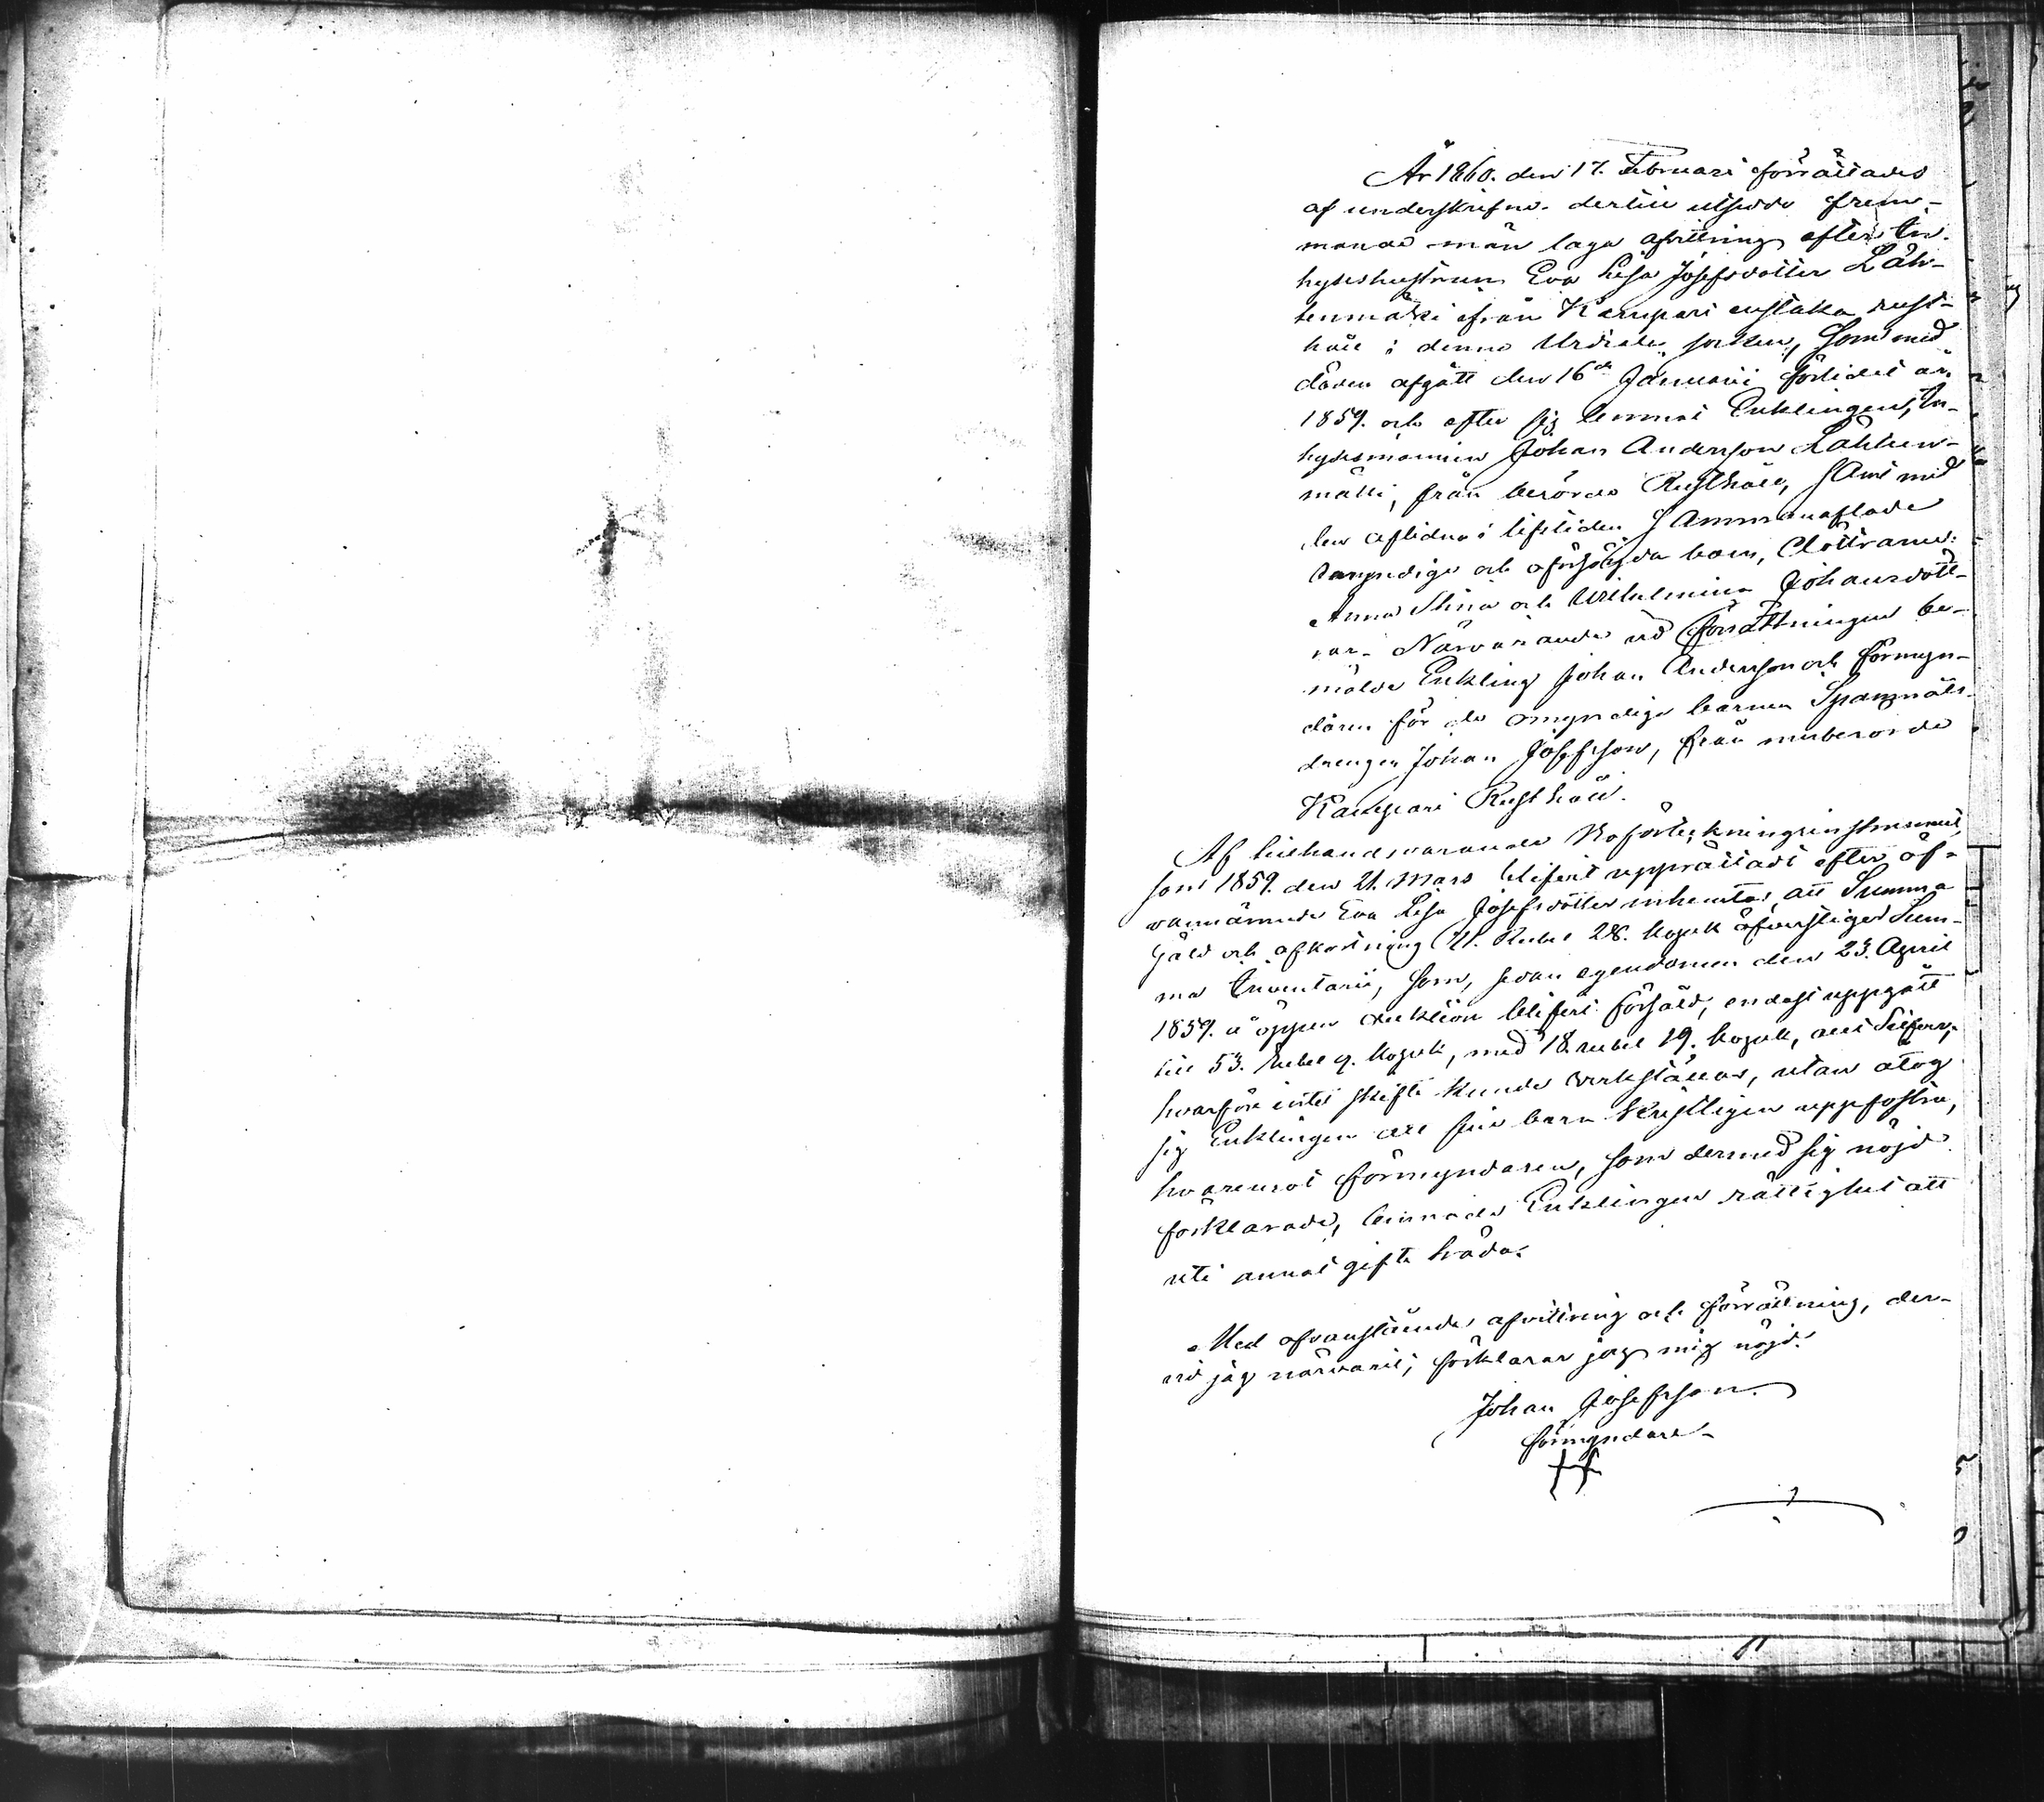 År 1860. den 17. Februari förrättades
af underskrifne dertill utsedde frem-
mande män laga afvittring efter In-
hyseshustrun Eva Lisa Josefsdotter Läh-
tenmäki ifrån Kamppari enstaka rust-
håll i denne Urdiala socken, som med
döden afgått den 16de Januarii förlidet år
1859. och efter sig lemnat Enklingen, In-
hysesmannen Johan Andersson Lähten-
mäki, från berörde Rusthåll, samt med
den aflidna i lifstiden sammanaflade
omyndiga och oförsörjda barn, Döttrarne:
Anna Stina och Wilhelmina Johansdött-
rar. Närvarande vid förrättningen be-
mälde Enkling Johan Andersson och förmyn-
daren för de omyndiga barnen
drengen Johan Josefsson, från nuberörde
Kamppari Rusthåll.
Af tillhandavarande Boförteckningsinstrument,
som 1859. den 21. Mars blifvit upprättadt efter of-
vannämnde Eva Lisa Josefsdotter inhemtas, att Summa
Gäld och afkortning 71. Rubel 28. kopek öfverstiger Sum-
ma Inventarii, som, sedan egendomen den 23. April
1859. å öppen auktion blifvit försåld, endast uppgått
till 53. Rubel 9. kopek, med 18. rubel 19. kopek, allt Silfver,
hvarföre intet skifte kunde verkställas, utan åtog
sig Enklingen att sina barn kristligen uppfostra,
hvaremot förmyndaren, som dermed sig nöjd
förklarade, lemnade Enklingen rättighet att
uti annat gifte träda.
Med ofvanstående afvittring och förrättning, der-
vid jag närvarit, förklarar jag mig nöjd.
Johan Josefsson
förmyndare